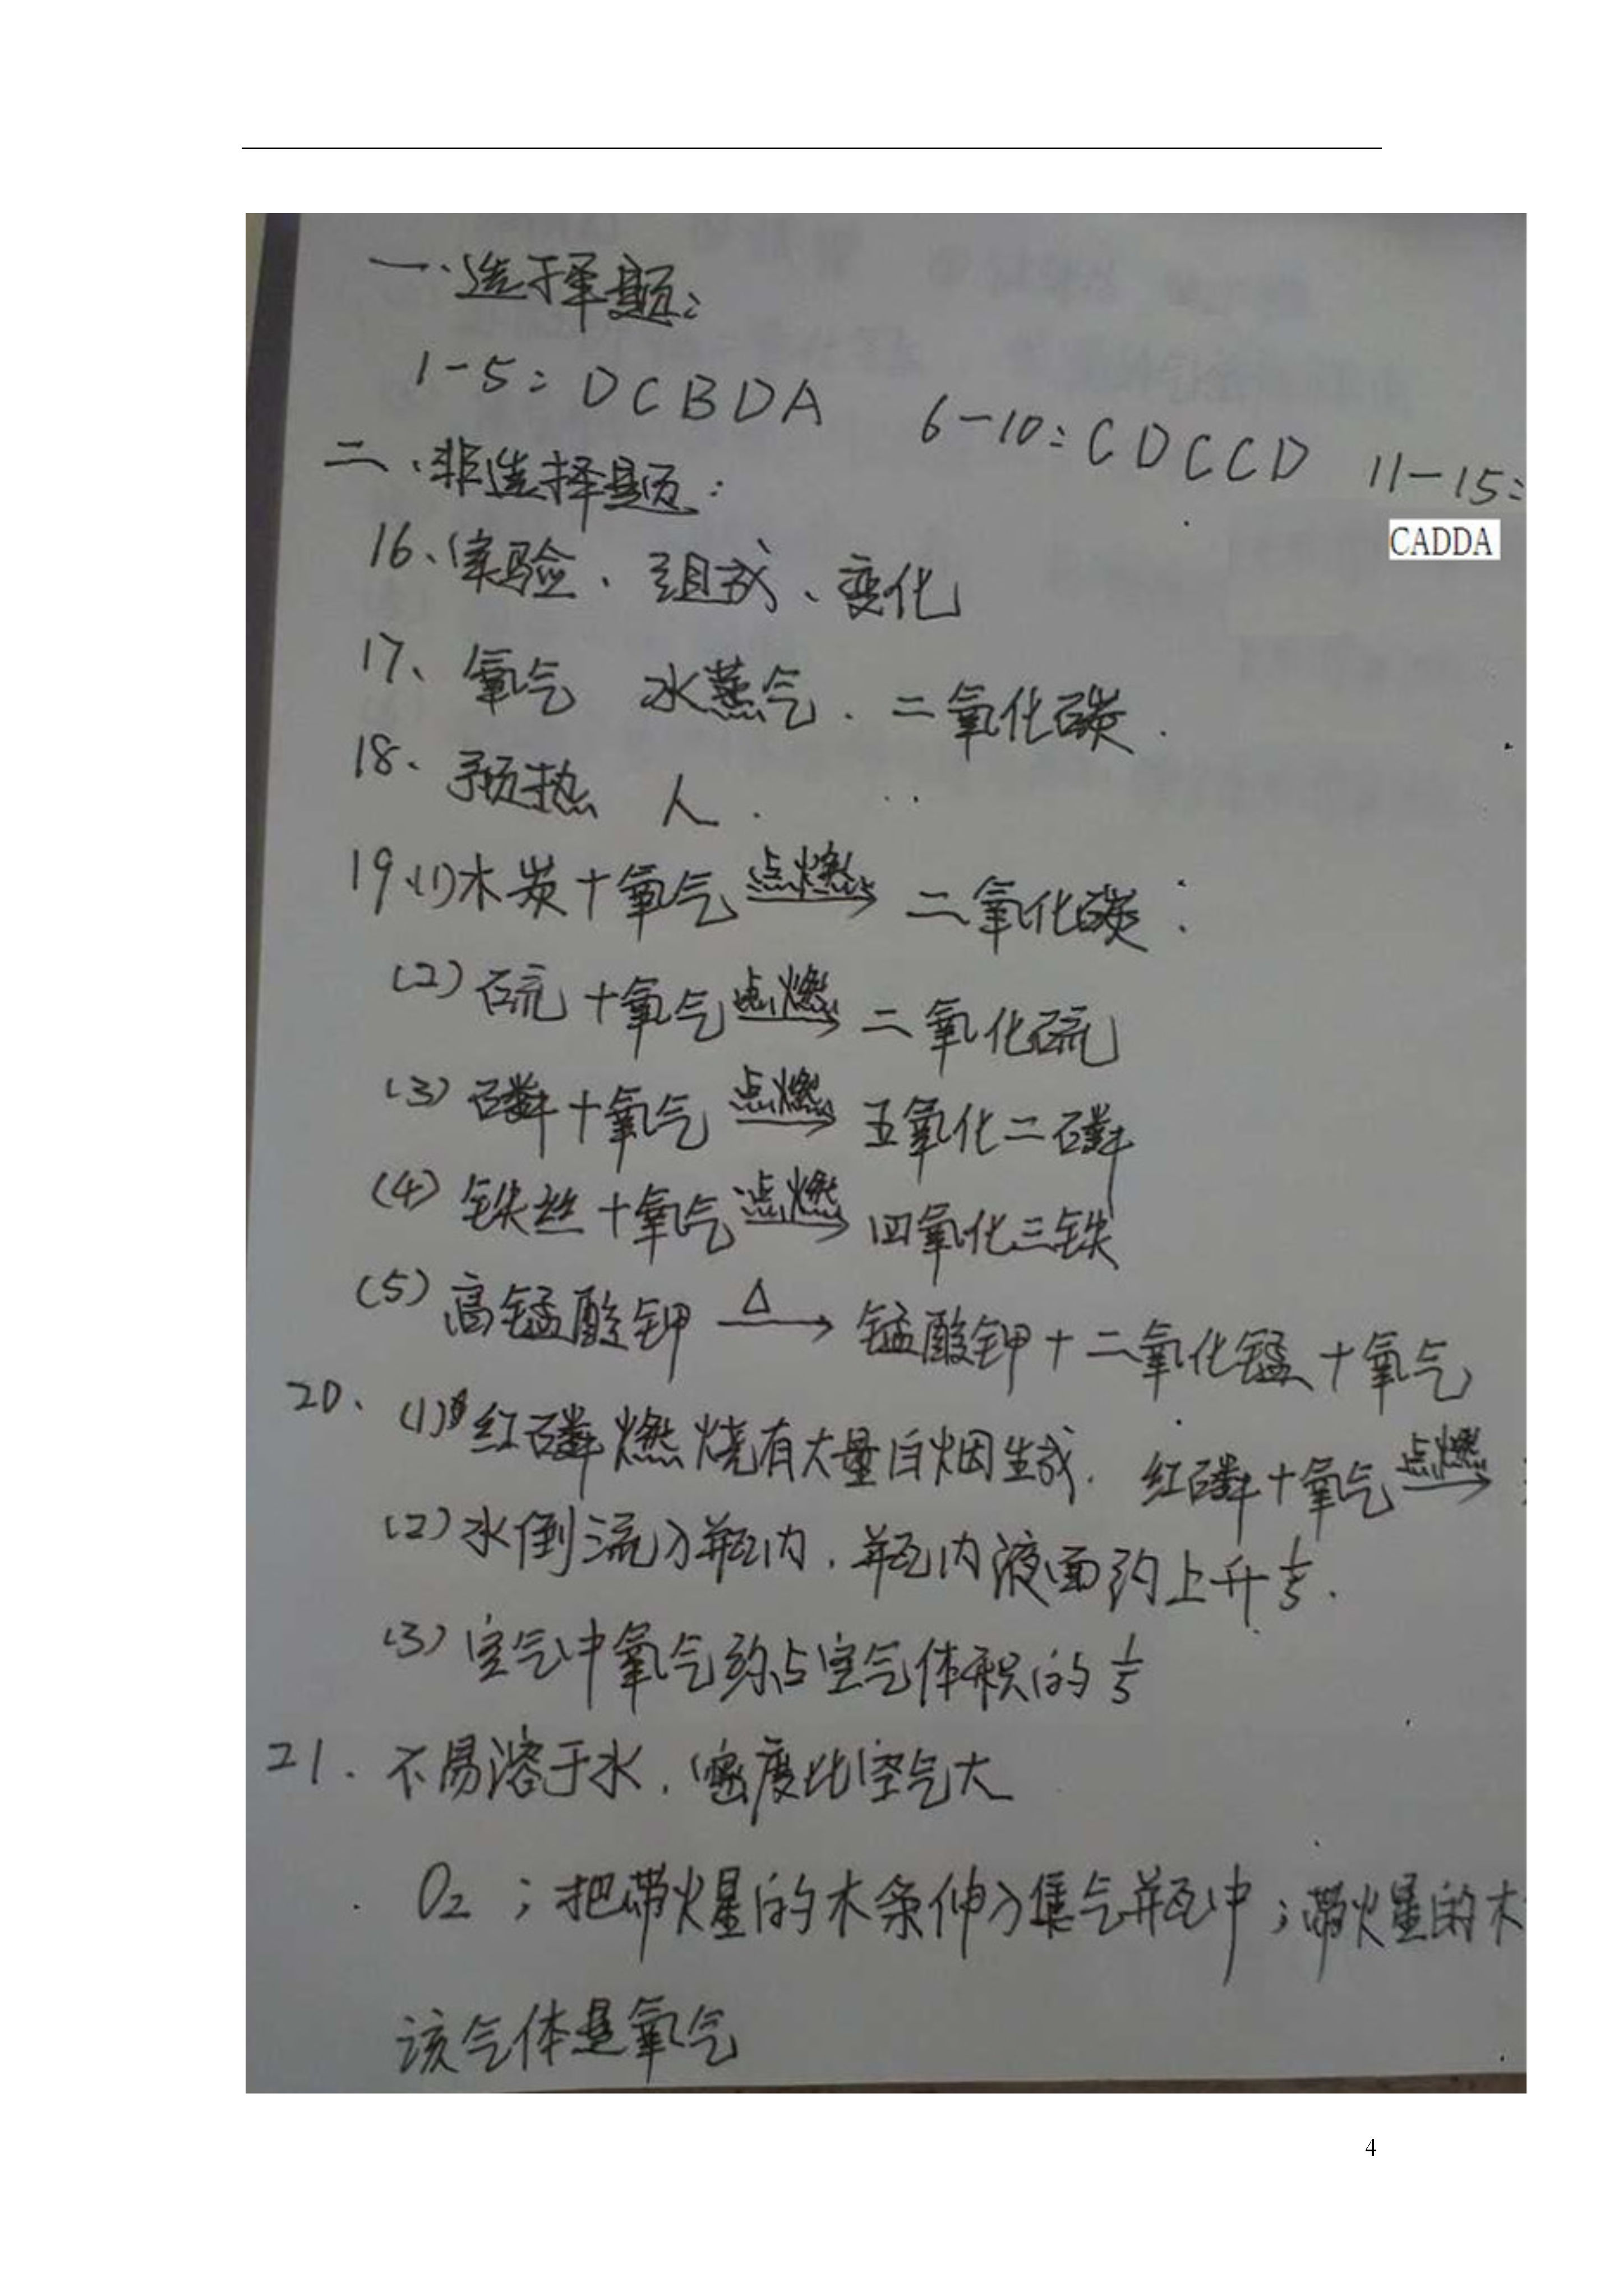 一.选择题:
1-5: DCBDA 6-10: CDCCD 11-15:
CADDA
二、非选择题:
16、实验、组成、变化
17、氧气 水蒸气.二氧化碳.
18、预热 人.
19.(1)木炭+氧气 点燃→ 二氧化碳.
(2)硫+氧气 点燃→ 二氧化硫
(3)磷+氧气 点燃→ 五氧化二磷
(4)铁丝+氧气 点燃→ 四氧化三铁
(5)高锰酸钾 Δ→ 锰酸钾+二氧化锰+氧气
20、(1)红磷燃烧有大量白烟生成. 红磷+氧气 点燃→
(2)水倒流入瓶内,瓶内液面约上升1/5.
(3)空气中氧气约占空气体积的1/5
21.不易溶于水,密度比空气大
O₂;把带火星的木条伸入集气瓶中;带火星的木
该气体是氧气
4